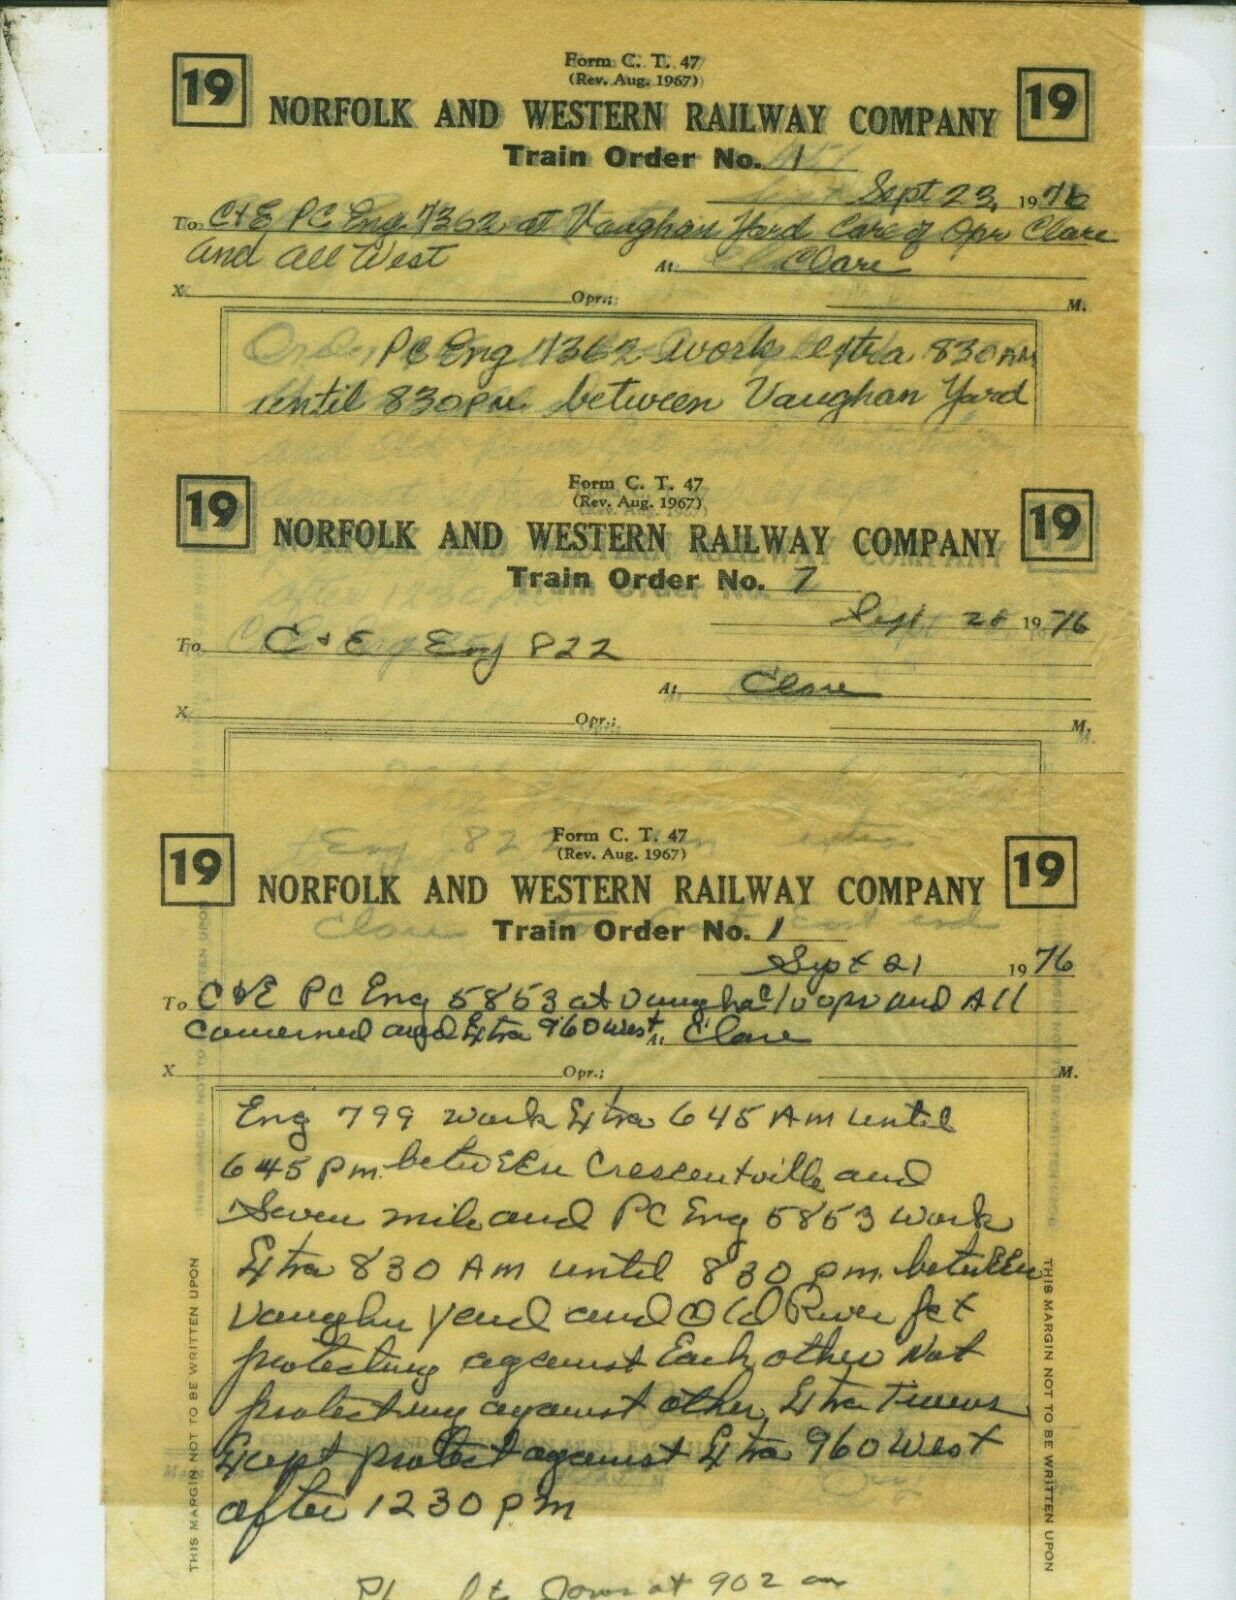 Form C. T. 47
(Rev. Aug. 1967)
19 NORFOLK AND WESTERN RAILWAY COMPANY 19
Train Order No. 1
Sept 23, 1976
To C&E PC Eng 7362 at Vaughan Yard Care of Opr Clare
and all West At Clare
X Opr.; M.
PC Eng 7362 work extra 830 AM
until 830 PM between Vaughan Yard
Form C. T. 47
(Rev. Aug. 1967)
19 NORFOLK AND WESTERN RAILWAY COMPANY 19
Train Order No. 7
Sept 1976
To C & E Eng 822
At Clare
X Opr.; M.
Eng 822 extra
Clare East end
Form C. T. 47
(Rev. Aug. 1967)
19 NORFOLK AND WESTERN RAILWAY COMPANY 19
Train Order No. 1
Sept 21 1976
To C&E PC Eng 5853 at Vaughn c/o opr and All
Concerned and Extra 960 West At Clare
X Opr.; M.
Eng 799 work Extra 645 AM until
645 PM between Crescentville and
Seven mile and PC Eng 5853 work
Extra 830 AM until 830 pm between
Vaughn Yard and Old River Jct
protecting against Each other Not
protecting against other Extra Trains
Except protect against Extra 960 West
after 1230 pm
THIS MARGIN NOT TO BE WRITTEN UPON
THIS MARGIN NOT TO BE WRITTEN UPON
at 902 am